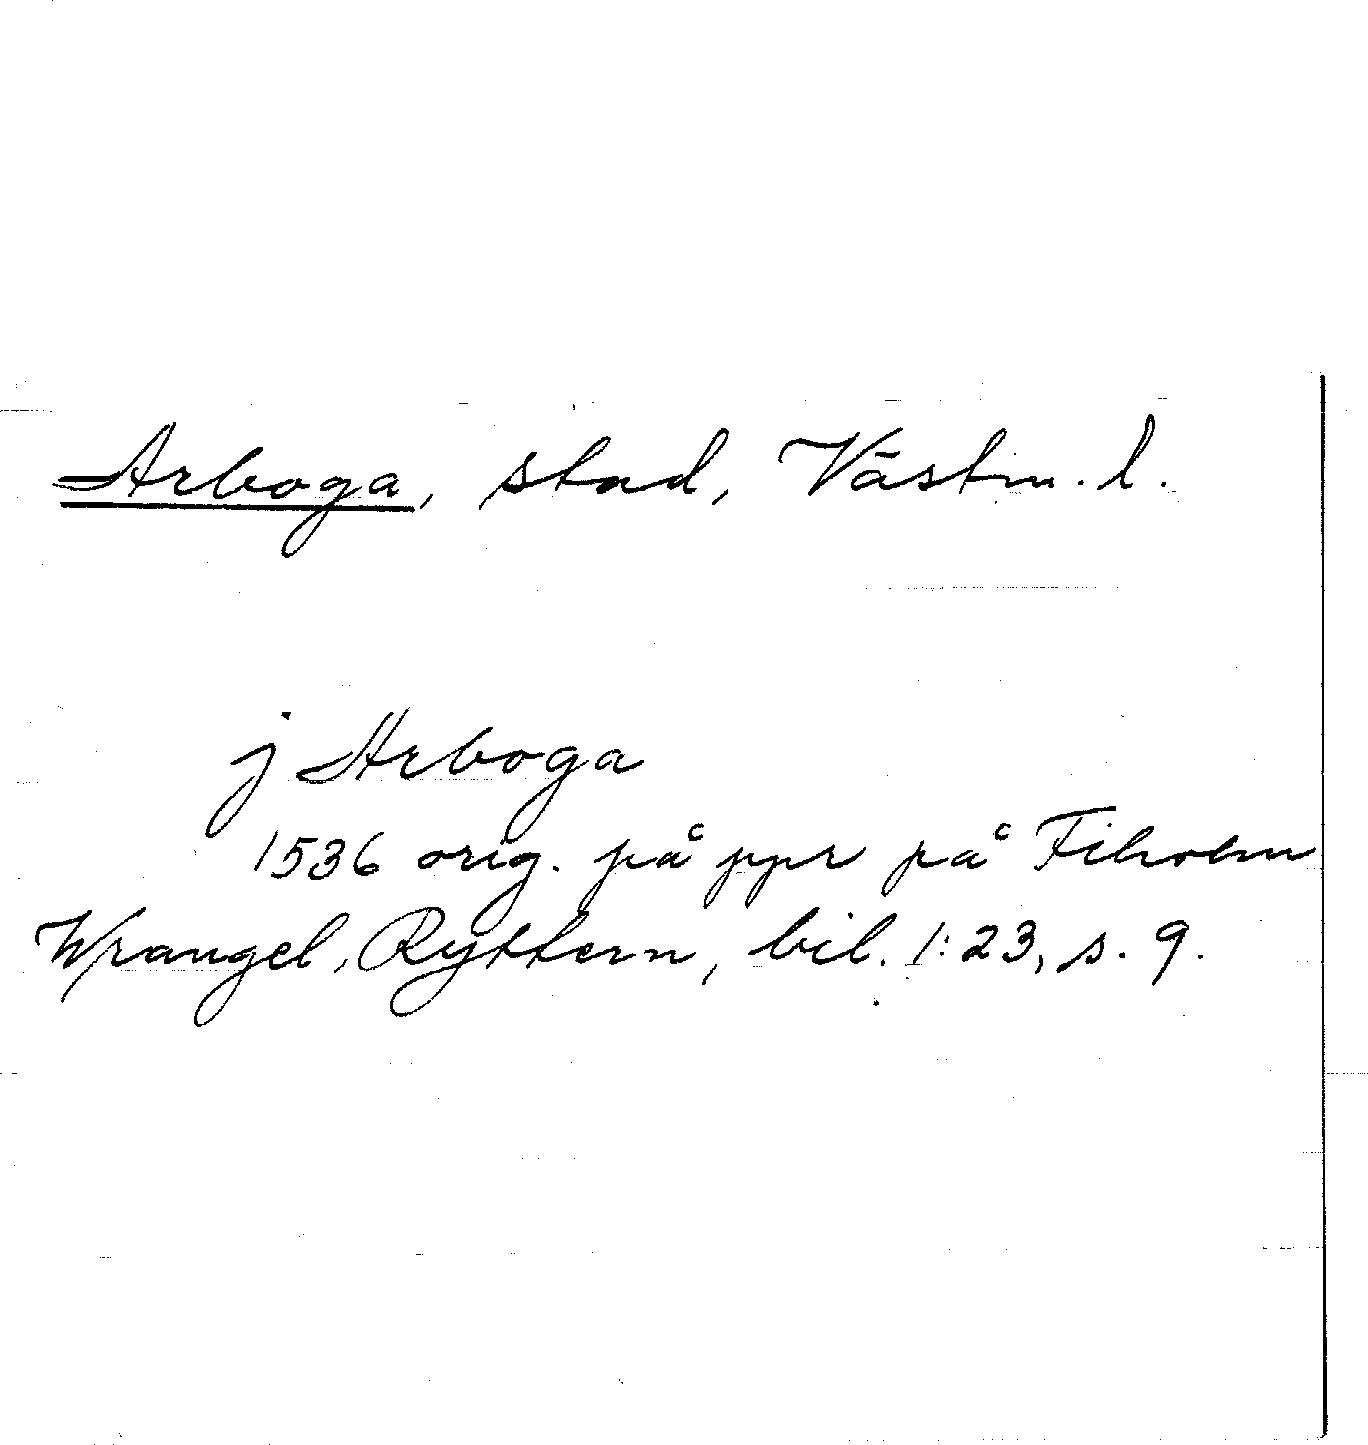 Arboga, stad, Västm. l.
j Arboga
1536 orig. på ppr på Fiholm
Wrangel, Ryttern, bil. 1:23, s. 9.